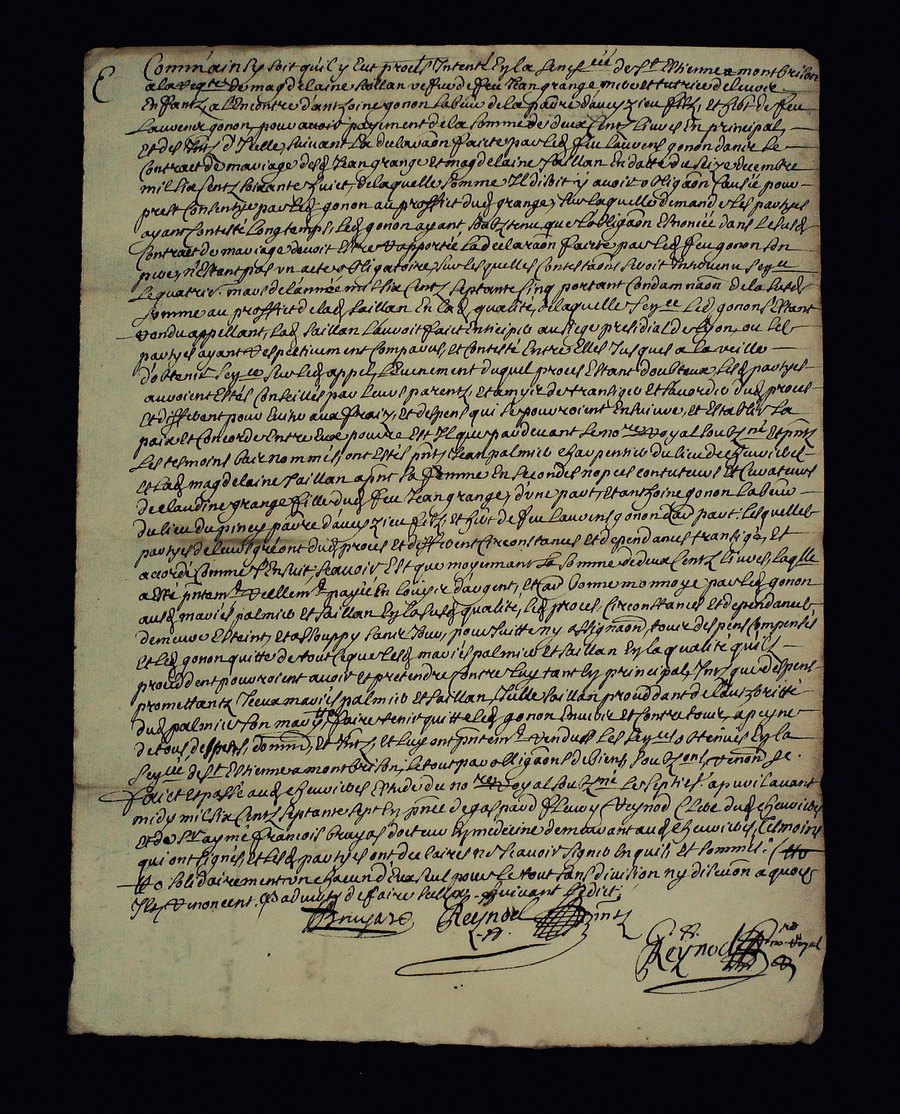 Comm'ainsy soit quil y eut proces Intenté En la seneslée de St Estienne a montbrison
a la reqte de magdelaine saillan vefve de feu Jean grange mere et tutrice de leurs
Enfantz a l'Encontre d'anthoine gonon labour de la padre d'aveyzieu filz, et hert de feu
Lauvens gonon, pour avoir payement de la somme de deux Centz livres En principal,
et des Intz d'Icelle suivant la declaraon faicte par led feu lauvens gonon dans le
Contract de mariage desd Jean grange et magdelaine saillan En datte du sixe decembre
mil six Centz soixante huict, de laquelle somme Il disoit y avoir obligaon Causée pour
prest Consentye par led gonon au proffict dud grange, sur laquelle demande les partyes
ayant Contesté Longtemps, led gonon ayant soubztenu que l'obligaon Enoncée dans le susd
Contract de mariage devoit Estre rapportée la declaraon faicte par led feu gonon son
pere n'Estant pas un acte obligatoire, sur lesquelles Contestaons seroit Intervenu Seyce
Le quatrie mars de l'année mil six Centz septante Cinq portant Condamnaon de lad
somme au proffict de lad saillan En lad qualité, de laquelle Seyce led gonon s'Estant
rendu appellant, lad saillan l'auroit faict Enticiper au siege presidial de lyon, ou les
partyes ayant respectivement Comparus, et Contesté Entre Elles Jusques a la veille
d'obtenir Seyce sur led appel, L'evenement duquel proces Estant doubteux lesd partyes
auroient Estés Conseillés par leurs parentz, et amys de transiger et s'accorder dud proces
et different pour Eviter aux fraix, et despens qui se pourroient Ensuivre, et Establir la
paix et Concorde Entre Eux pource Est Il que pardevant le nore Royal soubzné Et pntz
Les tesmoins bas nommés, ont Estés pntz Jean palmier charpentier du lieu de chevrieres
et lad magdelaine saillan apnt sa femme En secondes nopces contuteurs et Curateurs
de claudine grange fille dud feu Jean grange, d'une part, et anthoine gonon laboureur
du lieu du piney parre d'aveyzieu filz, et hert de feu lauvens gonon d'au part. Lesquelles
partyes de leurs gré ont dud proces et different Circonstances et dependances transigé, et
accordé Comme s'Ensuit scavoir Est que moyenant la somme de deux Centz livres, laqlle
a été pntemt réellemt payée En louys d'argent, et au bonne monoye par led gonon
ausd mariés palmier et saillan En la susd qualité, led proces, Circonstances et dependances
demeure Esteint, et assouppy sans Jour, poursuitte ny assignaon, tous despens Compensés
et led gonon quitte de tout ce que lesd mariés palmier et saillan En la qualité qu'ils
proceddent pourroient avoir et pretendre Contre luy tant En principal, Intz que despens
promettantz Iceux mariés palmier et saillan, Icelle saillan proceddant de l'authorité
dud palmier son mary faire tenir quitte led gonon Envers et Contre tous, a peyne
de tous despens, domm, et Intz, et luy ont pntemt rendues les Seyces obtenues En la
Seylée de St Estienne a montbrison, le tout par obligaons de biens, soubzons, renonons Se.
Faict et passé aud chevrieres Estude du nore Royal soubzné le septiesme apvril avant
midy mil six Centz septante sept En pnce de gaspard Fleury Reynod Clerc dud chevrieres
et de Sr aymé François brayas docteur En medecine demeurant aud chevrieres, tesmoins
qui ont signés, et lesd partyes ont declairés ne scavoir signer Enquis, et sommés.
solidairement l'un chacun d'Eux seul pour le tout sans division ny discution a quoy
Ilz renoncent.
Reynod
Reynod nore Royal